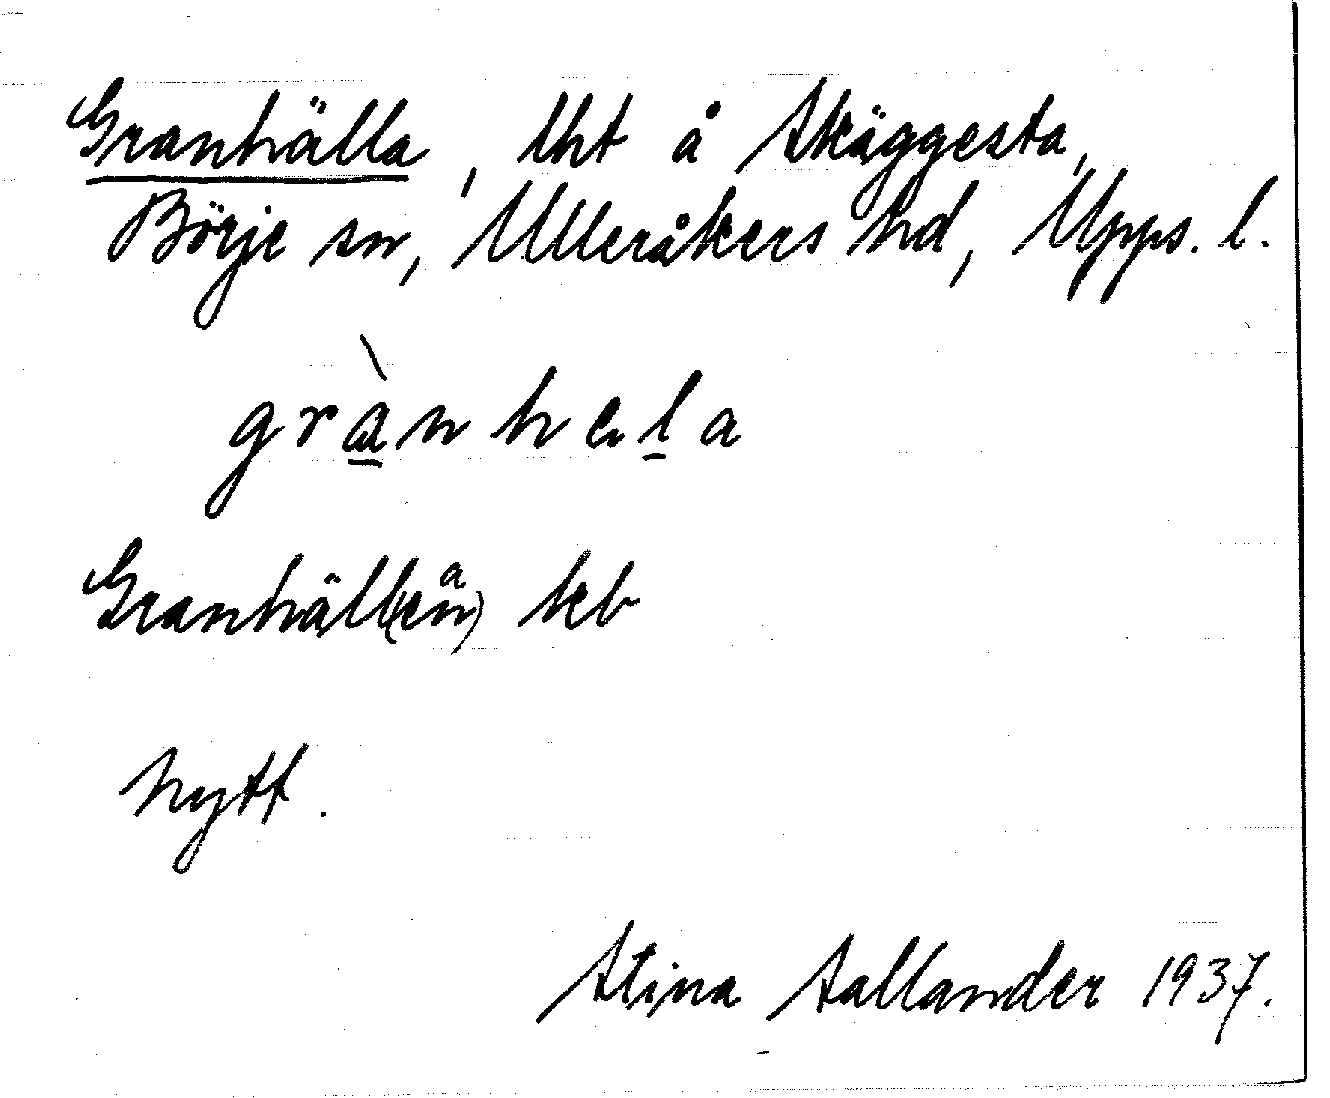 Granhälla, lht å Skäggesta,
Börje sn, Ulleråkers hd, Upps. l.
grànhela
Granhäll(en)a kb
Nytt.
Stina Sallander 1937.